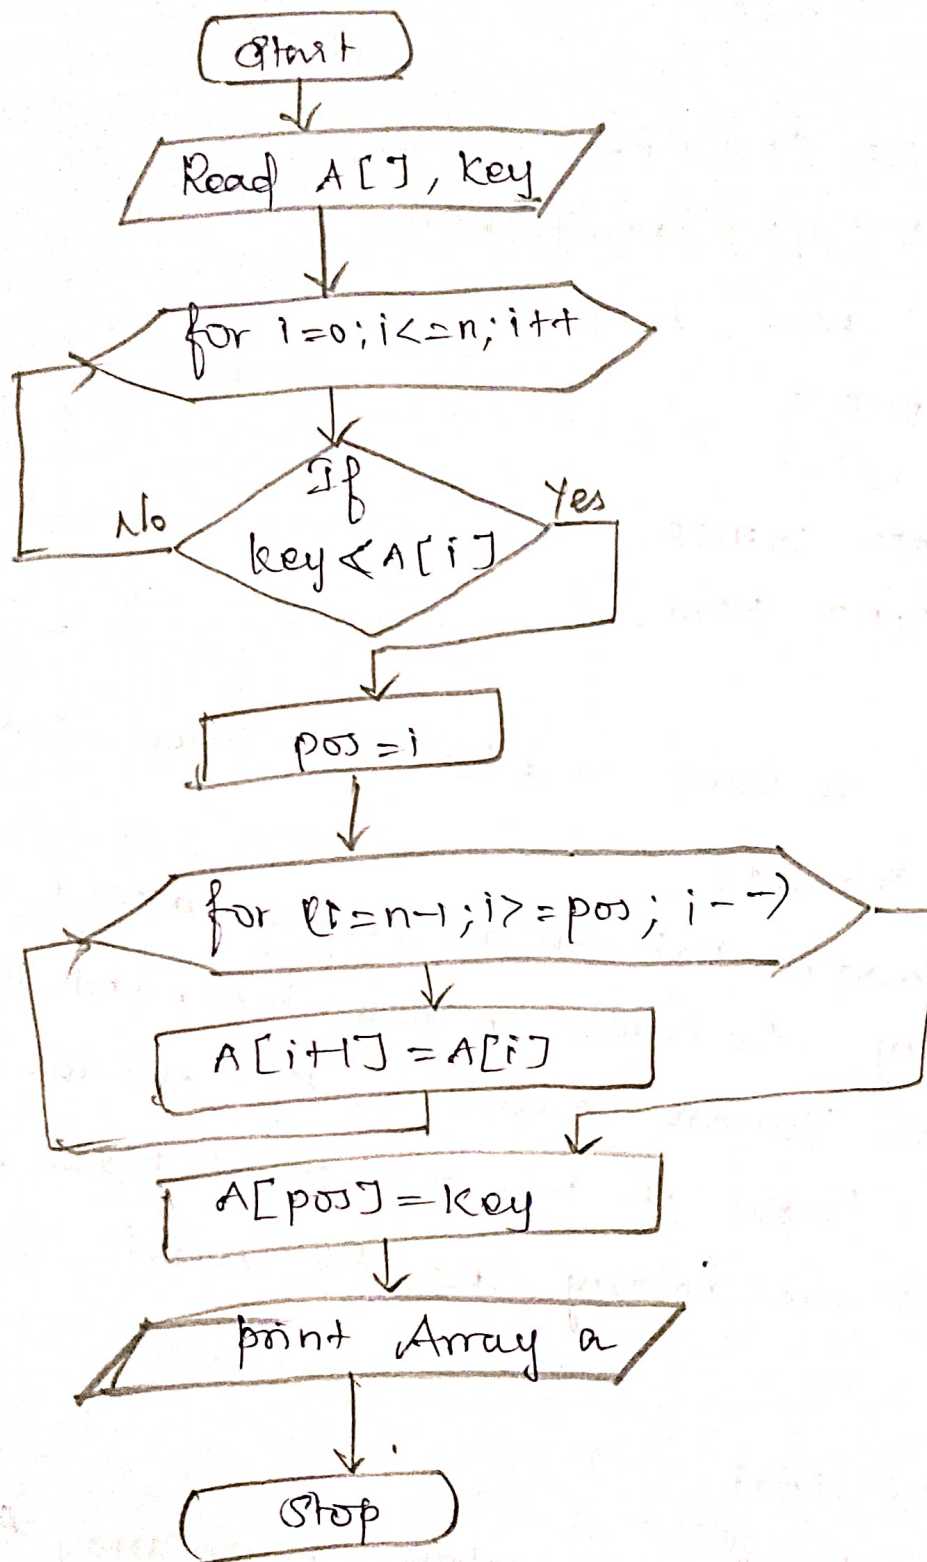 Start
Read A[], key
for i=0; i<=n; i++
If
key < A[i]
No
Yes
pos = i
for (i=n-1; i>=pos; i--)
A[i+1] = A[i]
A[pos] = key
print Array a
Stop